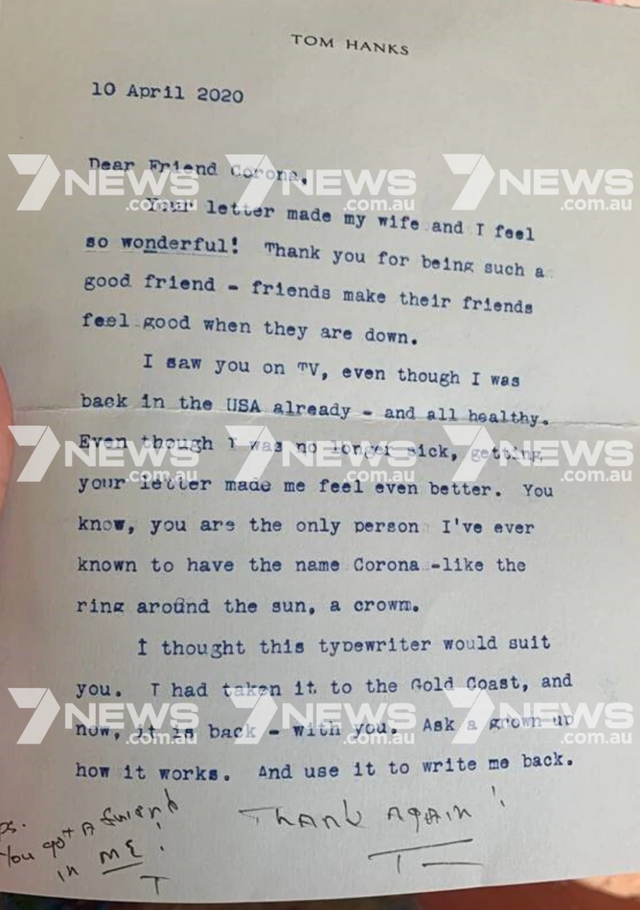 TOM HANKS
10 April 2020
Dear Friend Corona,
Your letter made my wife and I feel
so wonderful! Thank you for being such a
good friend - friends make their friends
feel good when they are down.
I saw you on TV, even though I was
back in the USA already - and all healthy.
Even though I was no longer sick, getting
your letter made me feel even better. You
know, you are the only person I've ever
known to have the name Corona -like the
ring around the sun, a crowm.
I thought this typewriter would suit
you. I had taken it to the Gold Coast, and
now, it is back - with you. Ask a grown up
how it works. And use it to write me back.
THANK AGAIN!
T
PS.
You got A friend
in ME!
T
7NEWS .com.au
7NEWS .com.au
7NEWS .com.au
7NEWS .com.au
7NEWS .com.au
7NEWS .com.au
7NEWS .com.au
7NEWS .com.au
7NEWS .com.au